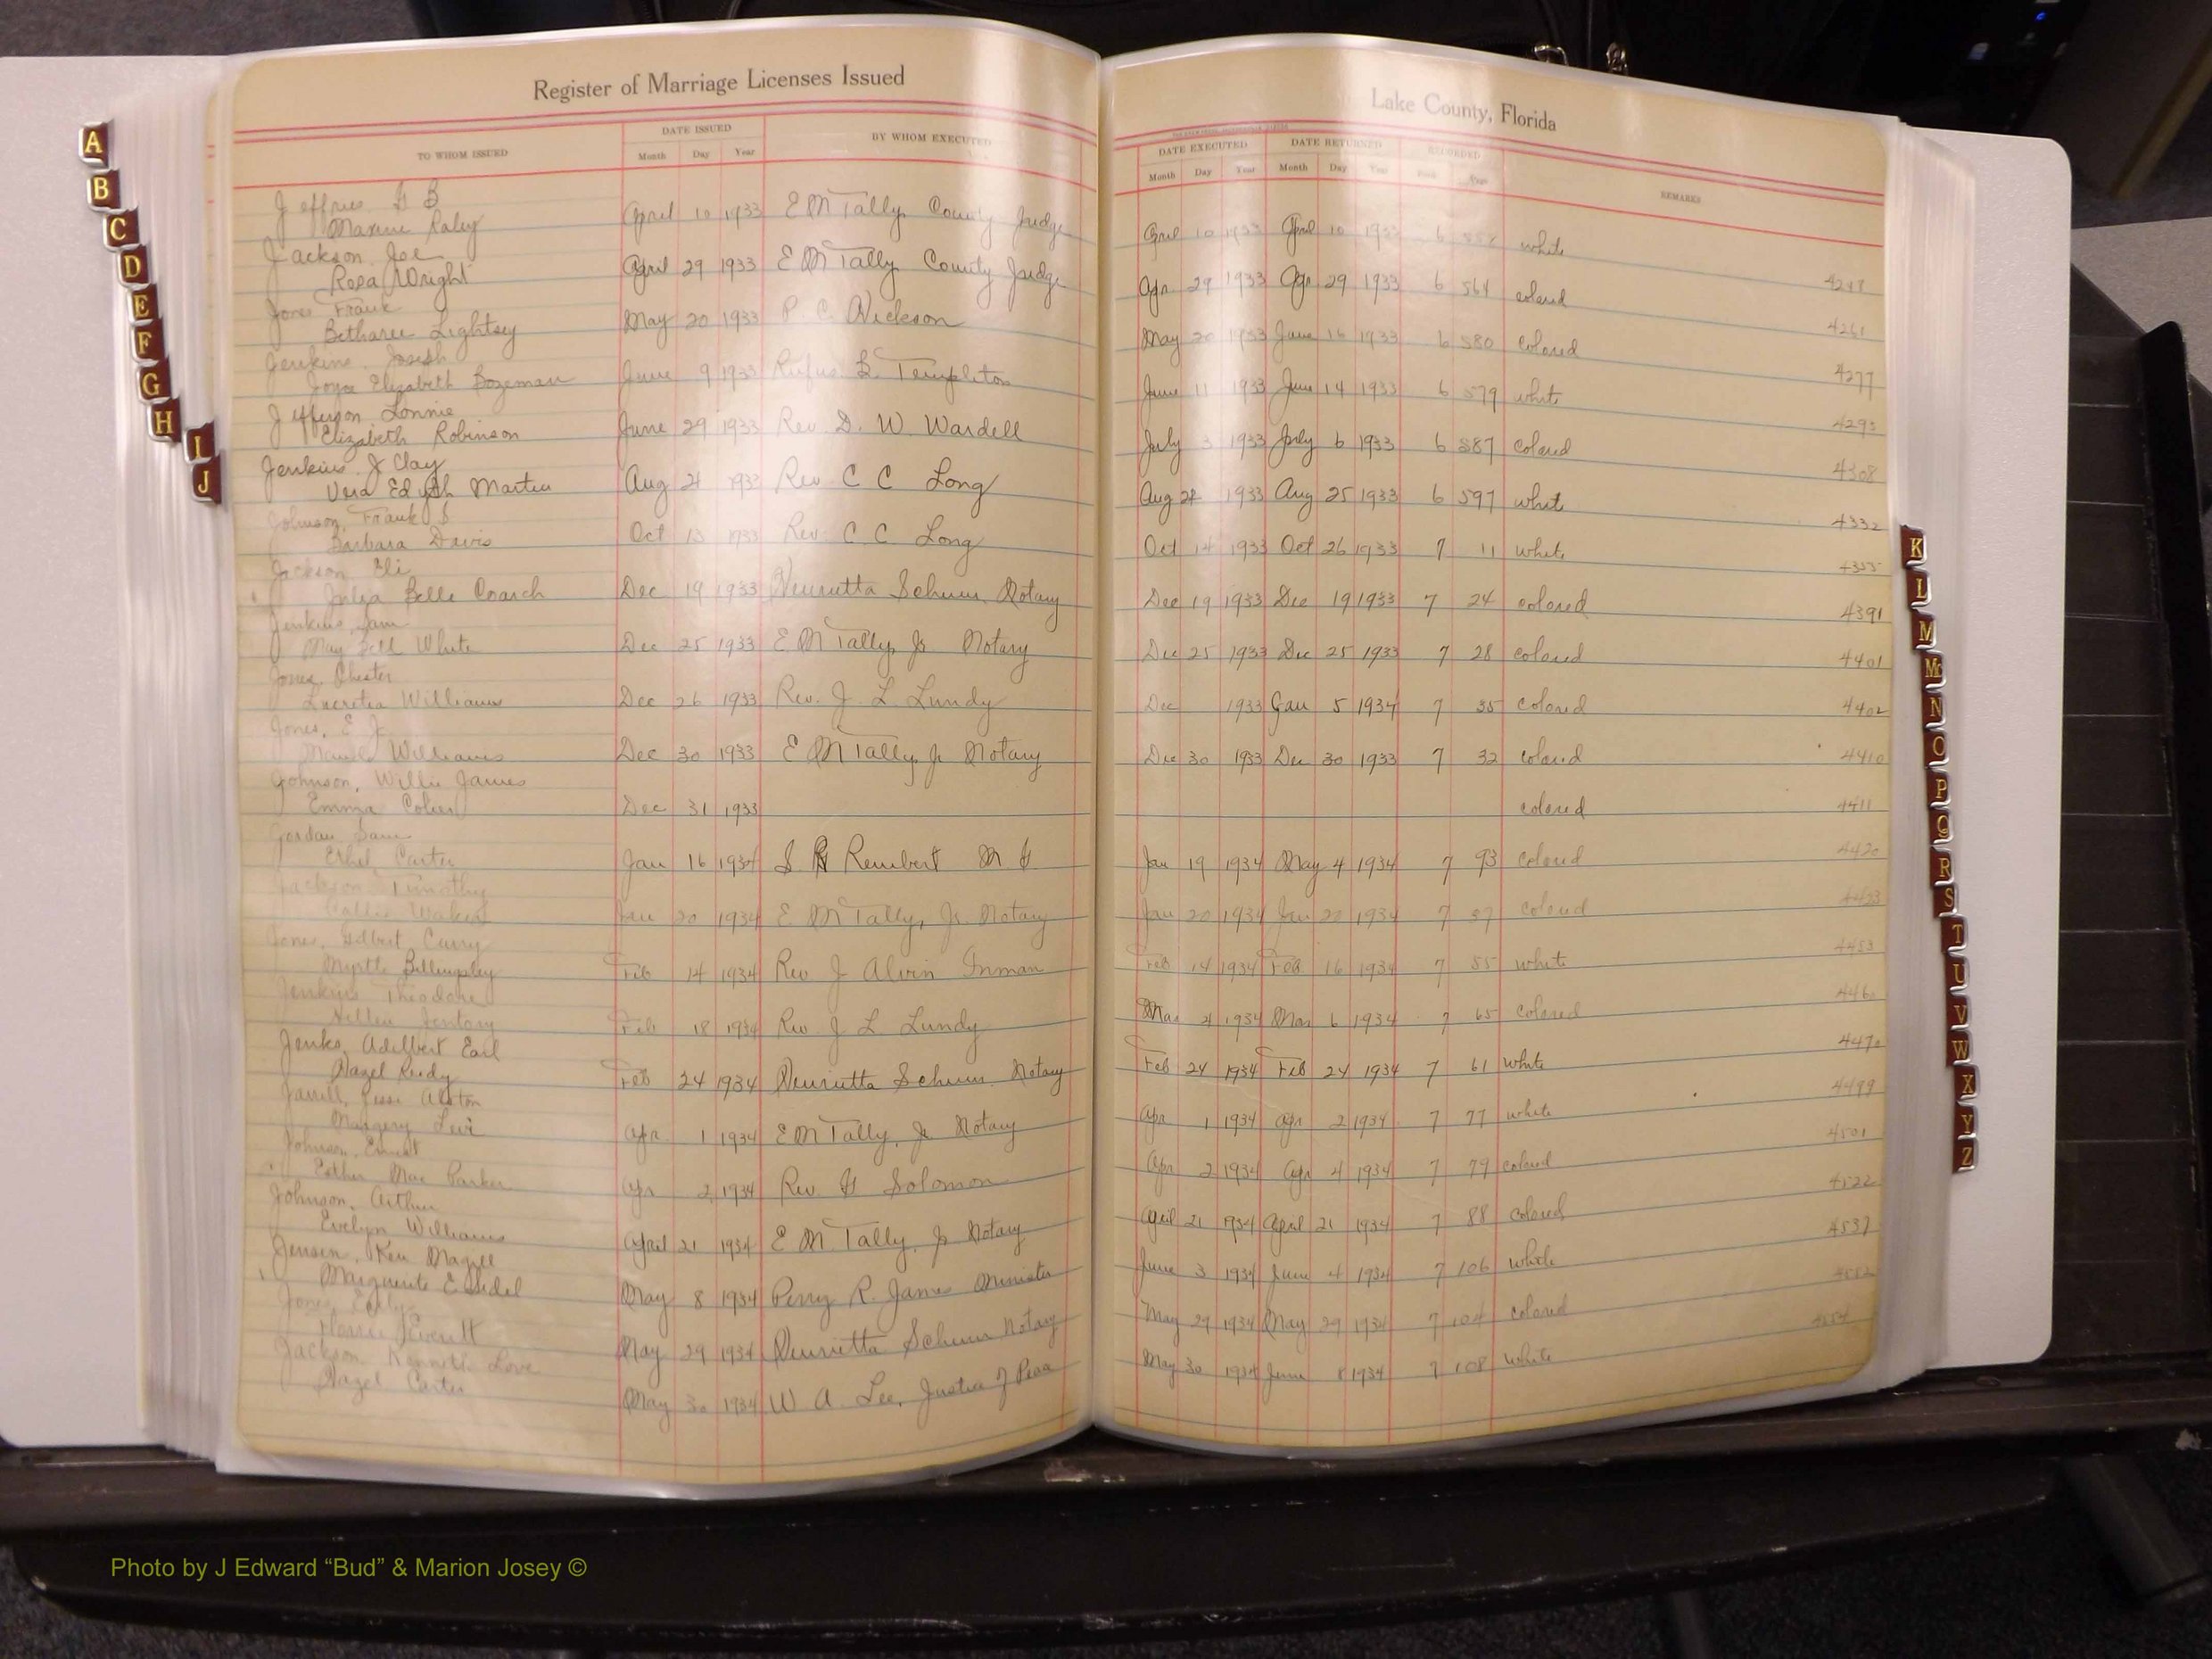 Register of Marriage Licenses Issued
TO WHOM ISSUED DATE ISSUED BY WHOM EXECUTED
Month Day Year
Jeffries
Maxine Raley April 10 1933 E M Tally County Judge
Jackson Joe
Rosa Wright April 29 1933 E M Tally County Judge
Jones Frank
Lightsey May 20 1933 P. C.
Jenkins, Joseph
Joyce Elizabeth Bozeman June 9 1933 Rufus Templeton
Jefferson Lonnie
Elizabeth Robinson June 29 1933 Rev. D. W. Wardell
Jenkins J Clay
Vera Edyth Martin Aug 21 1933 Rev. C C Long
Johnson, Frank
Barbara Davis Oct 13 1933 Rev. C. C. Long
Jackson Eli
Belle Coarch Dec 19 1933 Henrietta Notary
Jenkins, Sam
May Bell White Dec 25 1933 E M Tally, Jr Notary
Jones, Chester
Lucretia Williams Dec 26 1933 Rev. J. L. Lundy
Jones, E J.
Williams Dec 30 1933 E M Tally, Jr Notary
Johnson, Willie James
Emma Dec 31 1933
Jordan Sam
Ethel Carter Jan 16 1934 Rembert
Jackson Timothy
Jan 20 1934 E M Tally, Jr. Notary
Jones, Curry
Myrtle Billingsley Feb 14 1934 Rev J Alvin Inman
Jenkins Theodore
Feb 18 1934 Rev J L Lundy
Jenks, Adelbert Earl
Hazel Reedy Feb 24 1934 Henrietta Notary
Jarrell, Jesse Alston
Margery Apr 1 1934 E M Tally, Jr Notary
Johnson, Ernest
Esther Mae Parker Apr 2 1934 Rev. Solomon
Johnson, Arthur
Evelyn Williams April 21 1934 E M. Tally, Jr Notary
Jensen, Ken Magill
Marguerite May 8 1934 Perry R. James Minister
Jones,
May 29 1934 Henrietta Notary
Jackson Kenneth Love
Hazel Carter May 30 1934 W A. Lee, Justice of Peace
Lake County, Florida
DATE EXECUTED DATE RETURNED RECORDED REMARKS
Month Day Year Month Day Year Page
April 10 1933 April 10 1933 6 white
Apr 29 1933 Apr 29 1933 6 564 colored
May 20 1933 June 16 1933 6 580 colored 4261
June 11 1933 June 14 1933 6 579 white 4277
July 3 1933 July 6 1933 6 587 colored 4293
Aug 1933 Aug 25 1933 6 597 white 4308
Oct 14 1933 Oct 26 1933 7 11 white 4332
Dec 19 1933 Dec 19 1933 7 24 colored 4355
Dec 25 1933 Dec 25 1933 7 28 colored 4391
Dec 1933 Jan 5 1934 7 35 colored 4401
Dec 30 1933 Dec 30 1933 7 32 colored 4402
colored 4410
4411
Jan 19 1934 May 4 1934 7 93 colored 4420
Jan 20 1934 Jan 20 1934 7 37 colored
Feb 14 1934 Feb 16 1934 7 55 white 4453
Mar 4 1934 Mar 6 1934 7 65 colored
Feb 24 1934 Feb 24 1934 7 61 white 4470
Apr 1 1934 Apr 2 1934 7 77 white 4499
Apr 2 1934 Apr 4 1934 7 79 colored 4501
April 21 1934 April 21 1934 7 88 colored 4522
June 3 1934 June 4 1934 7 106 white 4537
May 29 1934 May 29 1934 7 104 colored
May 30 1934 June 8 1934 7 108 white 4554
A
B
C
D
E
F
G
H
I
J
K
L
M
Mc
N
O
P
Q
R
S
T
U
V
W
X
Y
Z
Photo by J Edward “Bud” & Marion Josey ©